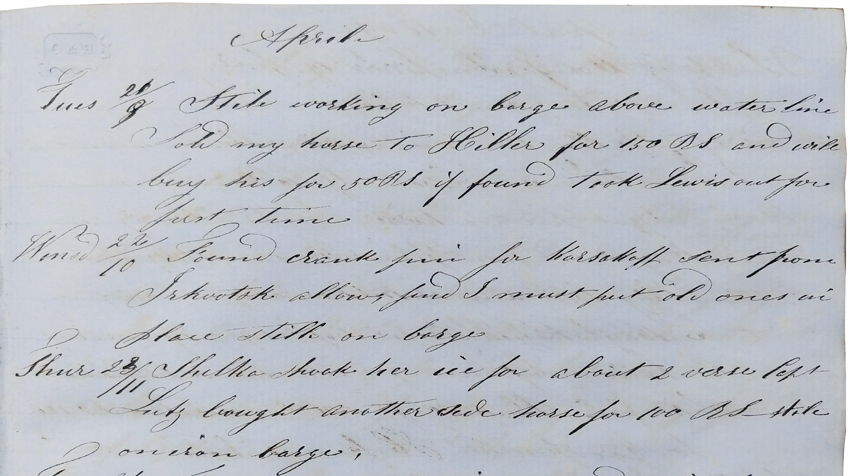 Aprile
Tues 21/9 Stile working on barge above water line
Sold my horse to Hiller for 150 RS and will
buy his for 50 RS if found took Lewis out for
furst time
Wend 22/10 Found crank pin for Korsakoff sent from
Irkootsk allow, find I must put old ones in
place stille on barge
Thur 23/11 Shilka shook her ice for about 2 verse left
Lutz bought another side horse for 100 RS stile
on iron barge,